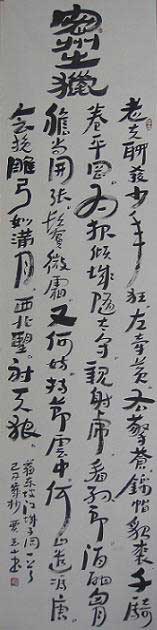 密州出獵
老夫聊發少年狂左牽黃右擎蒼錦帽貂裘千騎
卷平岡为报傾城随太守親射虎看孙郎酒酣胸
膽尚開張鬢微霜又何妨持節雲中何日遣馮唐
会挽雕弓如滿月西北望射天狼
東坡江城子词一首